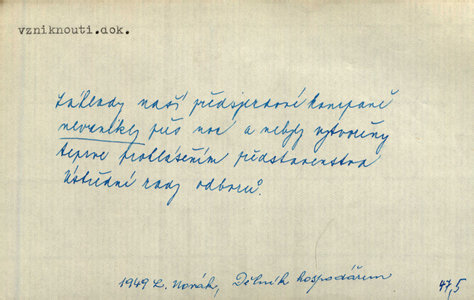 vzniknouti.dok.
Základy naší předsjezdové kampaně
nevznikly přes noc a nebyly vytvořeny
teprve prohlášením představenstva
Ústřední rady odborů.
1949 L. Novák, Dělník hospodářem
47,5